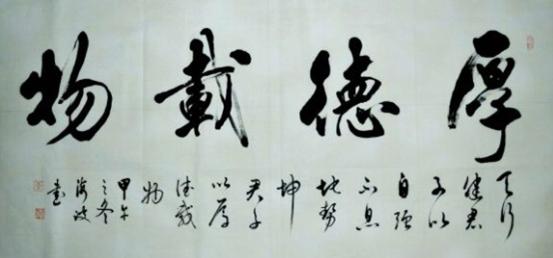 厚德載物
天行
健君
子以
自强
不息
地勢
坤
君子
以厚
德載
物
甲午
之冬
海波
書